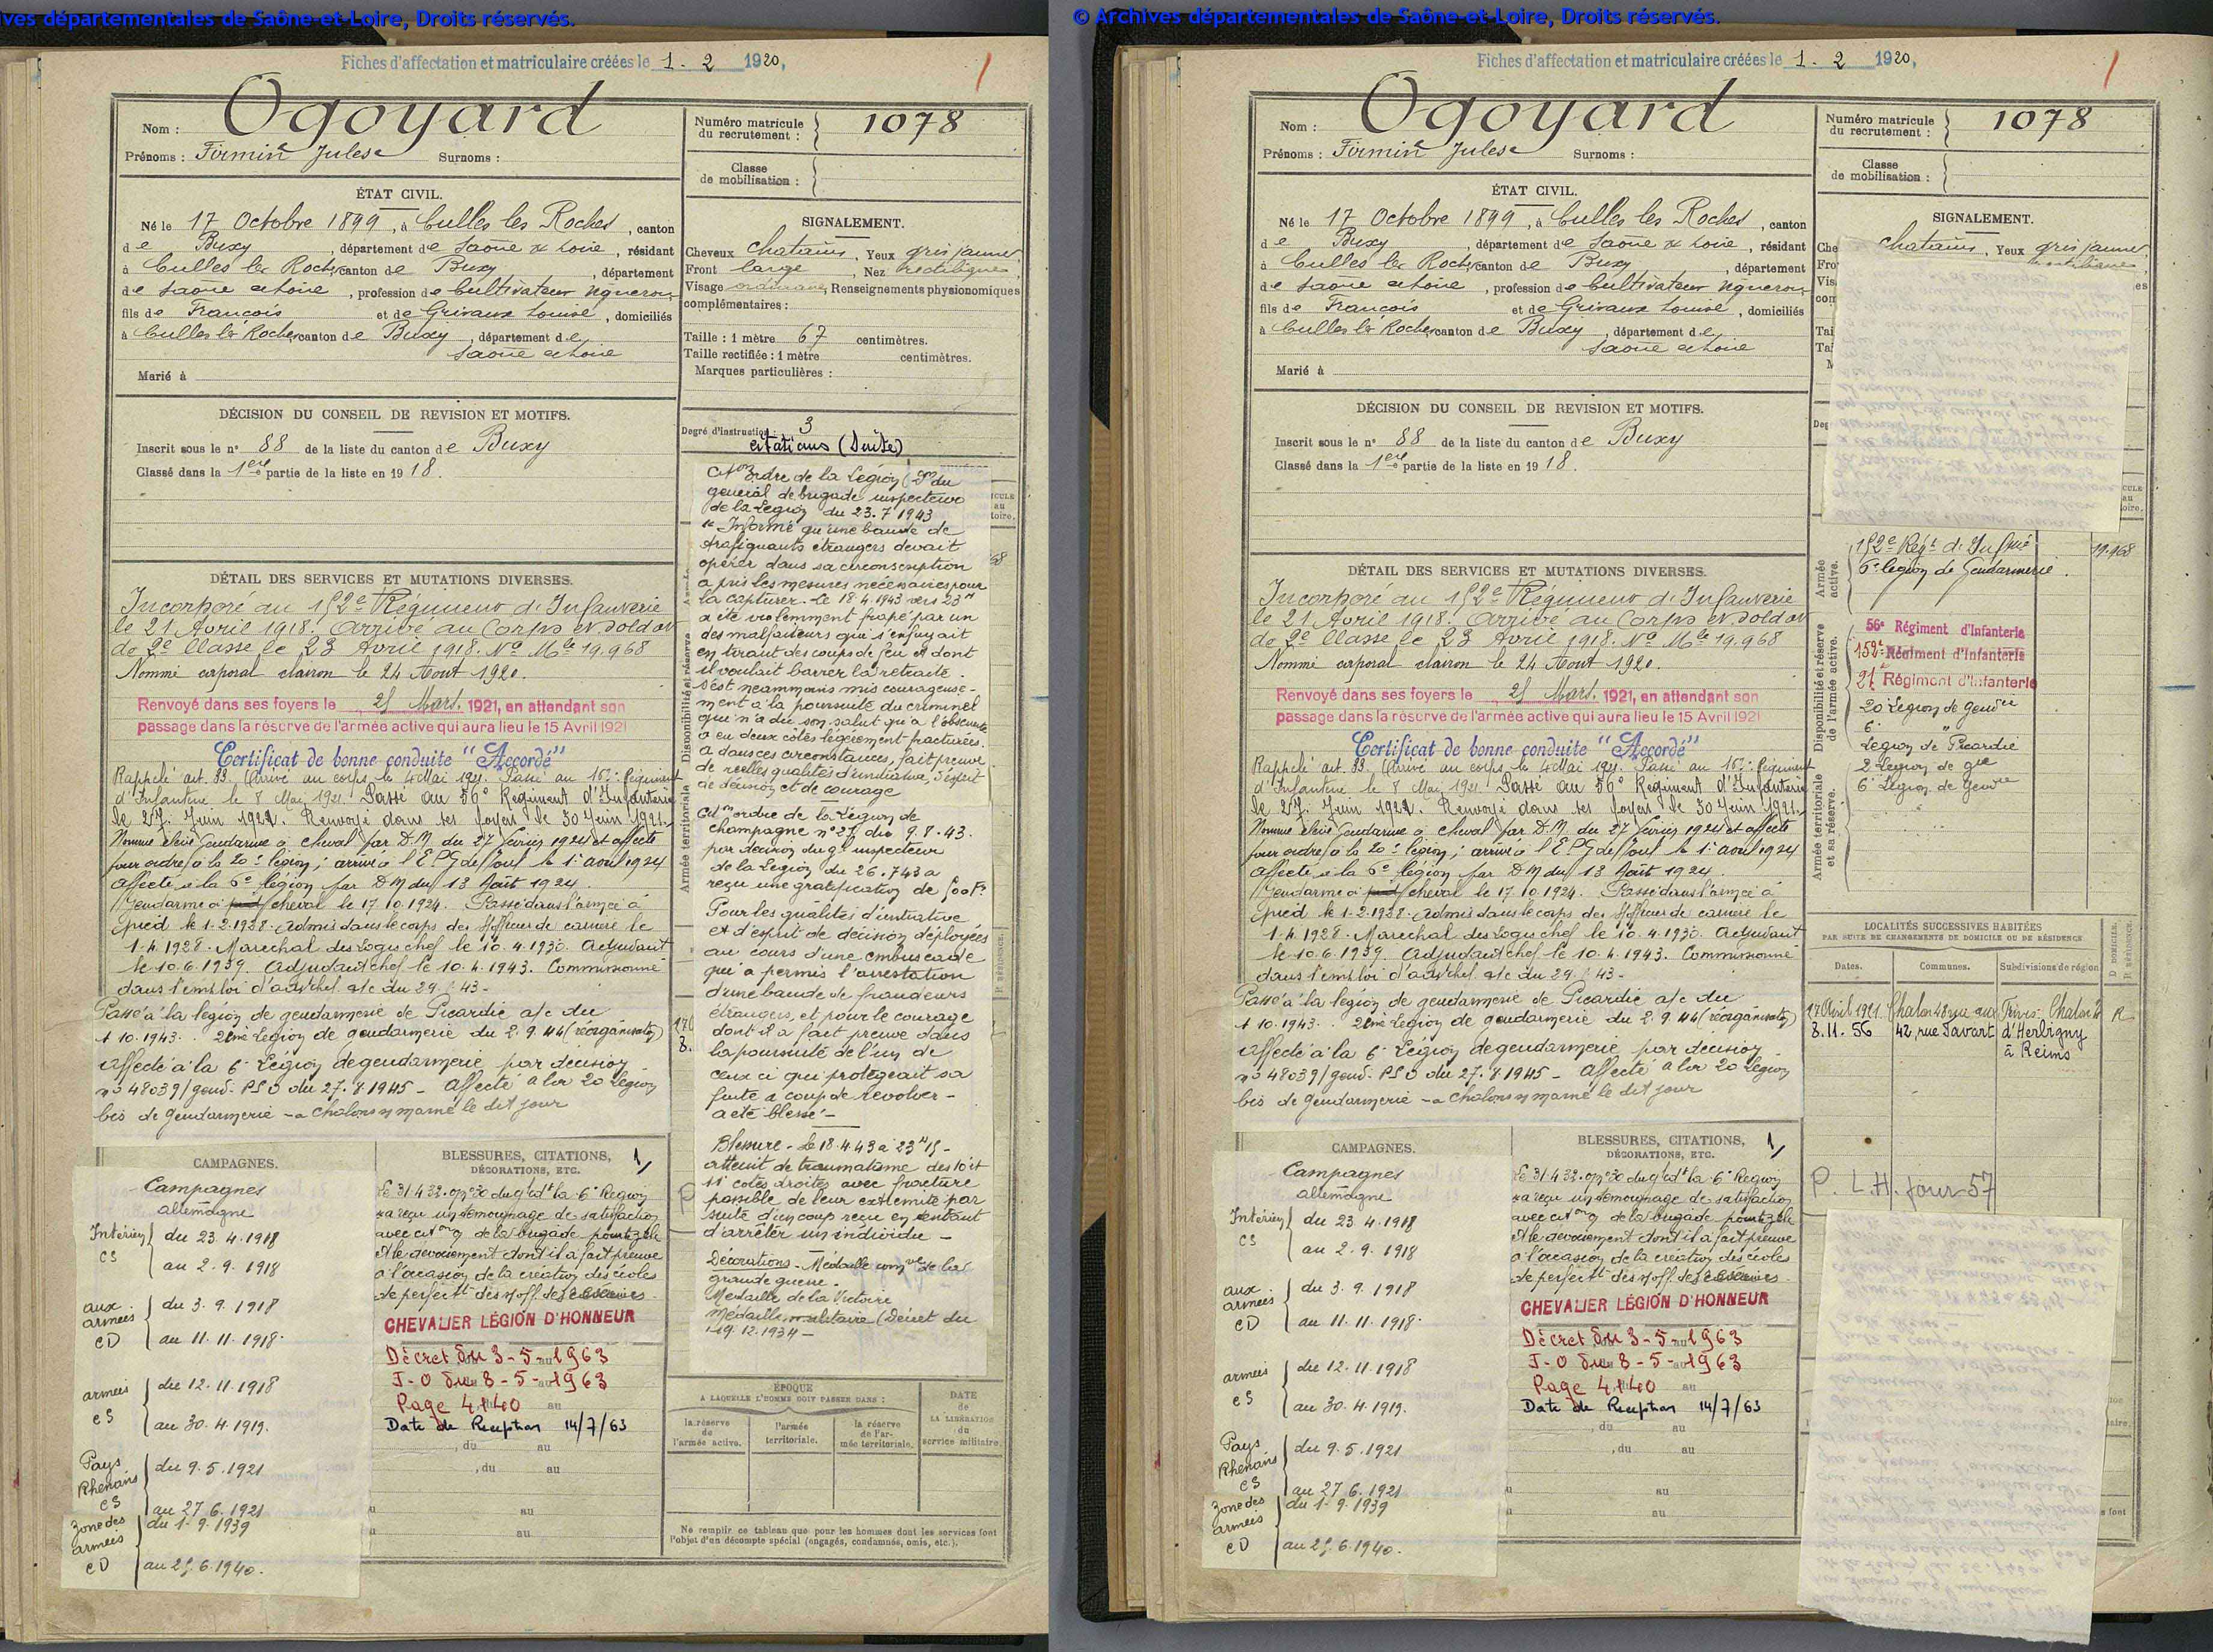 ves départementales de Saône-et-Loire, Droits réservés.
Fiches d'affectation et matriculaire créées le 1 . 2 1920,
1
Nom : Ogoyard
Prénoms : Firmin Jules Surnoms :
Numéro matricule du recrutement : 1078
Classe de mobilisation :
ÉTAT CIVIL.
Né le 17 Octobre 1899, à Culles les Roches, canton
de Buxy, département de Saône & Loire, résidant
à Culles les Roches canton de Buxy, département
de Saone et Loire, profession de Cultivateur vigneron
fils de François et de Grivaux Louise, domiciliés
à Culles les Roches canton de Buxy, département de
Saone et Loire
Marié à
SIGNALEMENT.
Cheveux chatains, Yeux gris jaunes
Front large, Nez rectiligne,
Visage ordinaire, Renseignements physionomiques
complémentaires :
Taille : 1 mètre 67 centimètres.
Taille rectifiée : 1 mètre centimètres.
Marques particulières :
Degré d'instruction : 3
DÉCISION DU CONSEIL DE REVISION ET MOTIFS.
Inscrit sous le n° 88 de la liste du canton de Buxy
Classé dans la 1ere partie de la liste en 1918.
DÉTAIL DES SERVICES ET MUTATIONS DIVERSES.
Incorporé au 152e Régiment d'Infanterie
le 21 Avril 1918. Arrivé au Corps et soldat
de 2e Classe le 23 Avril 1918. No Mle 19.968
Nommé caporal clairon le 24 Aout 1920.
Renvoyé dans ses foyers le 25 Mars. 1921, en attendant son
passage dans la réserve de l'armée active qui aura lieu le 15 Avril 1921
Certificat de bonne conduite "Accordé"
Rappelé art. 33. Arrivé au corps le 4 Mai 1921. Passé au 152e Régiment
d'Infanterie le 8 Mai 1921. Passé au 56e Régiment d'Infanterie
le 27 Juin 1921. Renvoyé dans ses foyers le 30 Juin 1921.
Nommé élève Gendarme à cheval par D.M. du 27 Février 1924 et affecté
pour ordre à la 20e légion; arrivé à l'E.P.G de Toul le 1er aout 1924
affecté à la 6e légion par DM du 13 Août 1924.
Gendarme à cheval le 17.10.1924. Passé dans l'arme à
pied le 1-2-1928. Admis dans le corps des s/officiers de carrière le
1.4.1928. Marechal des Logis chef le 10.4.1930. Adjudant
le 10.6.1939. Adjudant chef le 10.4.1943. Commissionné
dans l'emploi d'adj chef a/c du 29. 43 -
Passé à la légion de gendarmerie de Picardie a/c du
1 10.1943. 2ème Légion de gendarmerie du 2.9.44 (réorganisation)
Affecté à la 6e Légion de gendarmerie par décision
no 48039/gend. PSO du 27.8.1945 - Affecté à la 20 Legion
bis de Gendarmerie - à Chalons s/ marne le dit jour
CAMPAGNES.
Campagnes
allemagne
Intérieur CS du 23.4.1918
au 2.9.1918
aux armées CD du 3.9.1918
au 11.11.1918.
armées CS du 12.11.1918
au 30.4.1919.
Pays Rhénans CS du 9.5.1921
au 27.6.1921
zone des armées CD du 1.9.1939
au 25.6.1940.
BLESSURES, CITATIONS, DÉCORATIONS, ETC.
1/
a reçu un témoignage de satisfaction
avec citon à de la brigade pour le zèle
et le dévouement dont il a fait preuve
à l'occasion de la création des écoles
de perfectt des s/off. de réserves.
CHEVALIER LÉGION D'HONNEUR
Décret du 3-5-1963
J-O du 8-5-1963
Page 4.140
Date de Reception 14/7/63
, du au
, du au
au
au
citations (Suite)
Citon ordre de la Légion (Don du
général de brigade inspecteur
de la Légion du 23.7 1943
"Informé qu'une bande de
trafiquants étrangers devait
opérer dans sa circonscription
a pris les mesures nécessaires pour
la capturer. Le 18.4.1943 vers 23H
a été violemment frapé par un
des malfaiteurs qui s'enfuyait
en tirant des coups de feu et dont
il voulait barrer la retraite.
S'est néammoins mis courageuse-
ment à la poursuite du criminel
qui n'a dû son salut qu'à l'obscurité
a eu deux côtes légèrement fracturées.
A dans ces circonstances, fait preuve
de réelles qualités d'initiative, d'esprit
de décision et de courage
Citon ordre de la Légion de
Champagne no 27 du 9.8.43.
par décision du gl inspecteur
de la Légion du 26.7 43 a
reçu une gratification de 500 Fr
Pour les qualités d'initiative
et d'esprit de décision déployées
au cours d'une embuscade
qui a permis l'arrestation
d'une bande de fraudeurs
étrangers, et pour le courage
dont il a fait preuve dans
la poursuite de l'un de
ceux ci qui protégeait sa
fuite à coup de revolver -
a été blessé -
Blessure - Le 18.4.43 à 23H15 -
atteint de traumatisme des 10 et
11e cotes droites avec fracture
possible de leur extrémité par
suite d'un coup reçu en tentant
d'arrêter un individu -
Décorations - Médaille comve de la
grande guerre.
Médaille de la Victoire
Médaille militaire (Décret du
19.12.1934 -
ÉPOQUE
A LAQUELLE L'HOMME DOIT PASSER DANS :
la réserve de l'armée active.
l'armée territoriale.
la réserve de l'armée territoriale.
DATE de LA LIBÉRATION du service militaire.
Ne remplir ce tableau que pour les hommes dont les services font
l'objet d'un décompte spécial (engagés, condamnés, omis, etc.).
© Archives départementales de Saône-et-Loire, Droits réservés.
Fiches d'affectation et matriculaire créées le 1 . 2 1920,
1
Nom : Ogoyard
Prénoms : Firmin Jules Surnoms :
Numéro matricule du recrutement : 1078
Classe de mobilisation :
ÉTAT CIVIL.
Né le 17 Octobre 1899, à Culles les Roches, canton
de Buxy, département de Saône & Loire, résidant
à Culles les Roches canton de Buxy, département
de Saone et Loire, profession de Cultivateur vigneron
fils de François et de Grivaux Louise, domiciliés
à Culles les Roches canton de Buxy, département de
Saone et Loire
Marié à
SIGNALEMENT.
chatains, Yeux gris jaunes
DÉCISION DU CONSEIL DE REVISION ET MOTIFS.
Inscrit sous le n° 88 de la liste du canton de Buxy
Classé dans la 1ere partie de la liste en 1918.
DÉTAIL DES SERVICES ET MUTATIONS DIVERSES.
Incorporé au 152e Régiment d'Infanterie
le 21 Avril 1918. Arrivé au Corps et soldat
de 2e Classe le 23 Avril 1918. No Mle 19.968
Nommé caporal clairon le 24 Aout 1920.
Renvoyé dans ses foyers le 25 Mars. 1921, en attendant son
passage dans la réserve de l'armée active qui aura lieu le 15 Avril 1921
Certificat de bonne conduite "Accordé"
Rappelé art. 33. Arrivé au corps le 4 Mai 1921. Passé au 152e Régiment
d'Infanterie le 8 Mai 1921. Passé au 56e Régiment d'Infanterie
le 27 Juin 1921. Renvoyé dans ses foyers le 30 Juin 1921.
Nommé élève Gendarme à cheval par D.M. du 27 Février 1924 et affecté
pour ordre à la 20e légion; arrivé à l'E.P.G de Toul le 1er aout 1924
affecté à la 6e légion par DM du 13 Août 1924.
Gendarme à cheval le 17.10.1924. Passé dans l'arme à
pied le 1-2-1928. Admis dans le corps des s/officiers de carrière le
1.4.1928. Marechal des Logis chef le 10.4.1930. Adjudant
le 10.6.1939. Adjudant chef le 10.4.1943. Commissionné
dans l'emploi d'adj chef a/c du 29. 43 -
Passé à la légion de gendarmerie de Picardie a/c du
1 10.1943. 2ème Légion de gendarmerie du 2.9.44 (réorganisation)
Affecté à la 6e Légion de gendarmerie par décision
no 48039/gend. PSO du 27.8.1945 - Affecté à la 20 Legion
bis de Gendarmerie - à Chalons s/ marne le dit jour
CAMPAGNES.
Campagnes
allemagne
Intérieur CS du 23.4.1918
au 2.9.1918
aux armées CD du 3.9.1918
au 11.11.1918.
armées CS du 12.11.1918
au 30.4.1919.
Pays Rhénans CS du 9.5.1921
au 27.6.1921
zone des armées CD du 1.9.1939
au 25.6.1940.
BLESSURES, CITATIONS, DÉCORATIONS, ETC.
1/
a reçu un témoignage de satisfaction
avec citon à de la brigade pour le zèle
et le dévouement dont il a fait preuve
à l'occasion de la création des écoles
de perfectt des s/off. de réserves.
CHEVALIER LÉGION D'HONNEUR
Décret du 3-5-1963
J-O du 8-5-1963
Page 4.140
Date de Reception 14/7/63
, du au
, du au
au
au
Armée active.
152e Régt d'Infrie 19.968
6e légion de Gendarmerie
Disponibilité et réserve de l'armée active.
56e Régiment d'Infanterie
152e Régiment d'Infanterie
21e Régiment d'Infanterie
20 Légion de Gendrie
6e "
Légion de Picardie
2 Légion de gie
6e Légion de Gendrie
Armée territoriale et sa réserve.
LOCALITÉS SUCCESSIVES HABITÉES
PAR SUITE DE CHANGEMENTS DE DOMICILE OU DE RÉSIDENCE
Dates. Communes. Subdivisions de région D DOMICILE. R RÉSIDENCE.
17 Avril 1921. Chalon 48 rue aux Fèvres. Chalon R
8.11.56 42, rue Favart d'Herbigny
à Reims
P. L.H. pour 57